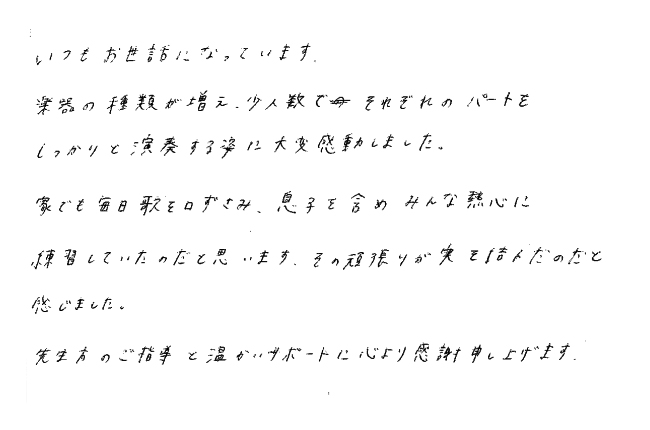 いつもお世話になっています。
楽器の種類が増え、少人数で それぞれの パートを
しっかりと演奏する姿に大変感動しました。
家でも毎日歌を口ずさみ、息子を含め みんな熱心に
練習していたのだと思います。その頑張りが実を結んだのだと
感じました。
先生方のご指導と温かいサポートに心より感謝申し上げます。